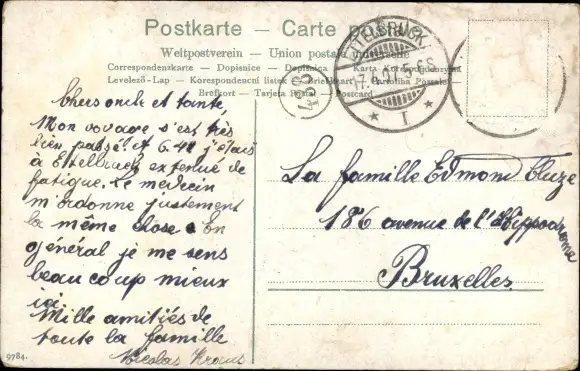 Postkarte — Carte Postale
Weltpostverein — Union postale universelle
Correspondenzkarte — Dopisnice — Dopisnica — Karta Korespondencyjna
Levelező-Lap — Korespondenční lístek — Briefkaart — Cartolina Postale
Brefkort — Tarjeta Postal — Postcard
ETTELBRUCK
I
Chers oncle et tante,
Mon voyage s'est très
bien passé. A 6.40 j'étais
à Ettelbruck extenué de
fatigue. Le medecin
m'ordonne justement
la même chose. En
général je me sens
beaucoup mieux
ici.
Mille amitiés de
toute la famille
Nicolas Kraus
La famille Edmond
186 avenue de l'Hippodrome
Bruxelles.
9784.